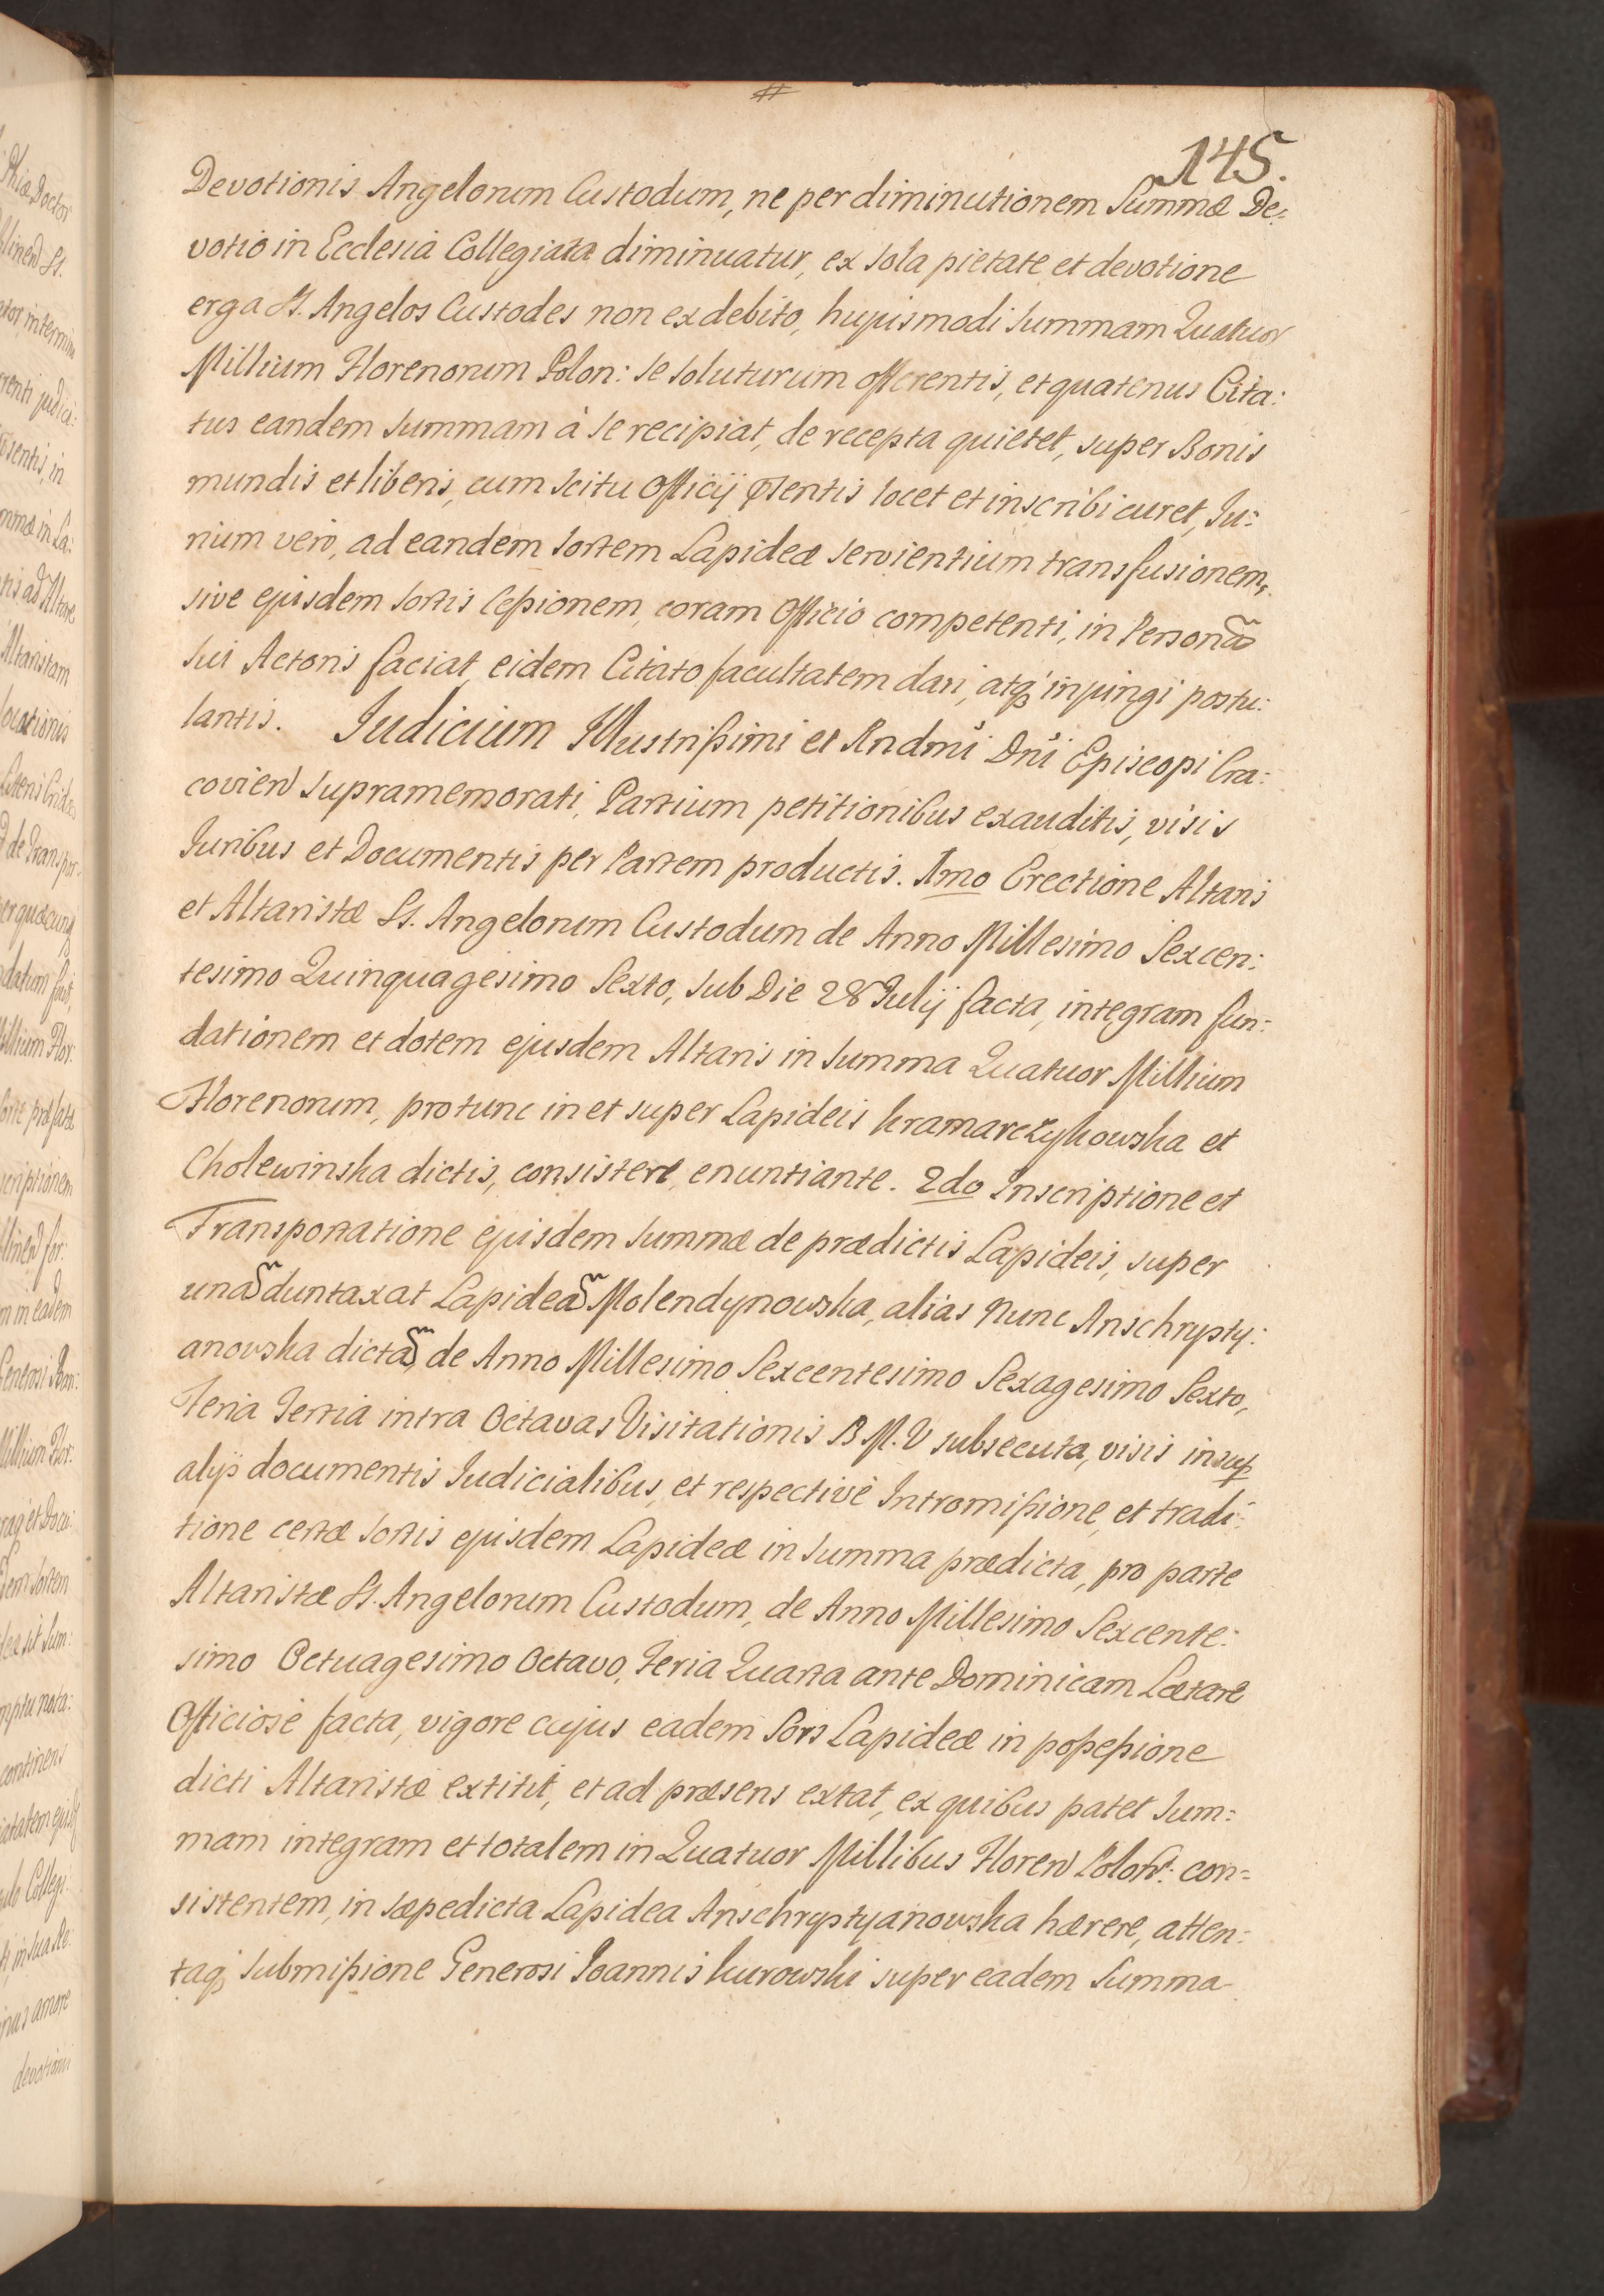 #
145.
Devotionis Angelorum Custodum, ne per diminutionem Summæ De:
votio in Ecclesia Collegiata diminuatur, ex sola pietate et devotione
erga SS. Angelos Custodes non ex debito, hujusmodi Summam Quatuor
Millium Florenorum Polon: se soluturum offerentis, et quatenus Cita:
tus eandem Summam à se recipiat, de recepta quietet, super Bonis
mundis et liberis, cum scitu Officij pñtentis locet et inscribi curet, Ju:
rium verò, ad eandem Sortem Lapideæ servientium transfusionem,
sive ejusdem Sortis Cessionem, coram Officio competenti, in Personã
sui Actoris faciat, eidem Citato facultatem dari, atq; injungi postu:
lantis. Judicium Illustrissimi et Rndmi Dni Episcopi Cra:
covien supramemorati, Partium petitionibus exauditis, visis
Juribus et Documentis per Partem productis. 1mo Erectione Altaris
et Altaristæ SS. Angelorum Custodum de Anno Millesimo Sexcen:
tesimo Quinquagesimo Sexto, sub Die 28 Julij facta, integram fun:
dationem et dotem ejusdem Altaris in Summa Quatuor Millium
Florenorum, pro tunc in et super Lapideis Kramarczykowska et
Cholewinska dictis, consistere, enuntiante. 2do Inscriptione et
Transportatione ejusdem Summæ de prædictis Lapideis, super
unã duntaxat Lapideã Molendynowska, alias nunc Anschrypty:
anowska dictã, de Anno Millesimo Sexcentesimo Sexagesimo Sexto,
Feria Tertia intra Octavas Visitationis B M. V subsecuta, visis insup
alijs documentis Judicialibus, et respectivè Intromissione, et tradi:
tione certæ Sortis ejusdem Lapideæ in Summa prædicta, pro parte
Altaristæ SS. Angelorum Custodum, de Anno Millesimo Sexcente:
simo Octuagesimo Octavo, Feria Quarta ante Dominicam Lætare
Officiosè facta, vigore cujus eadem Sors Lapideæ in possessione
dicti Altaristæ extitit, et ad præsens extat, ex quibus patet Sum:
mam integram et totalem in Quatuor Millibus Floren Polon: con:
sistentem, in sæpedicta Lapidea Anschryptyanowska hærere, atten:
taq; Submissione Generosi Joannis Kurowski super eadem Summa